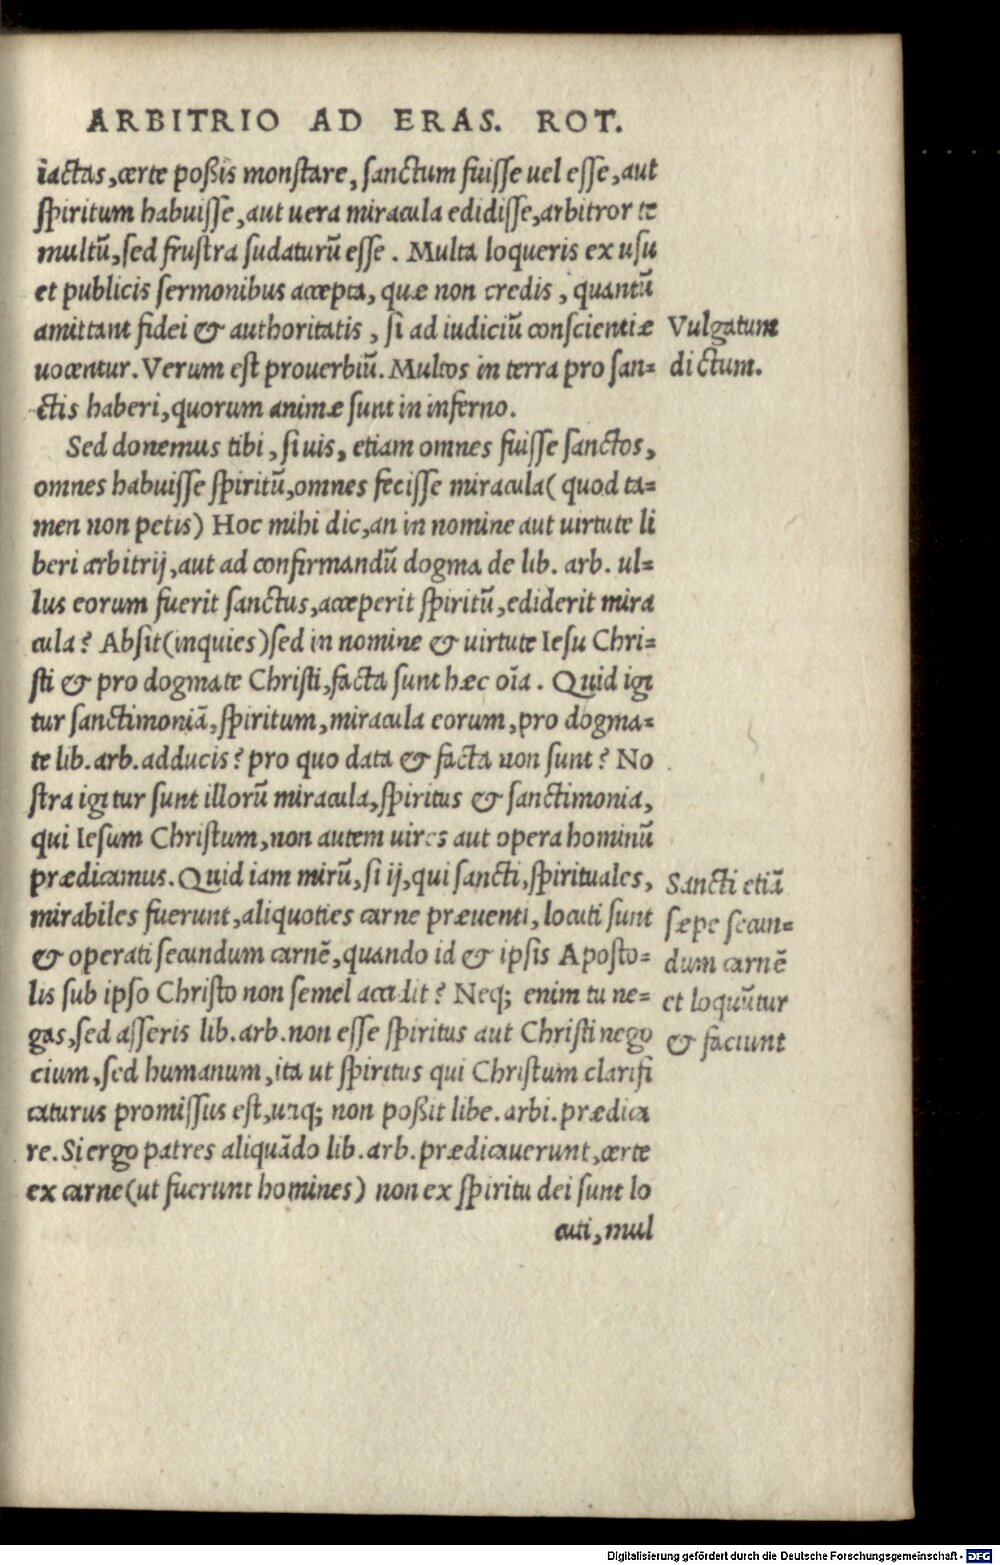 ARBITRIO AD ERAS. ROT.
iactas, certe poßis monstare, sanctum fuisse uel esse, aut
spiritum habuisse, aut uera miracula edidisse, arbitror te
multũ, sed frustra sudaturũ esse. Multa loqueris ex usu
et publicis sermonibus accepta, quæ non credis, quantũ
amittant fidei & authoritatis, si ad iudiciũ conscientiæ
uocentur. Verum est prouerbiũ. Multos in terra pro san=
ctis haberi, quorum animæ sunt in inferno.
Vulgatum
dictum.
Sed donemus tibi, si uis, etiam omnes fuisse sanctos,
omnes habuisse spiritũ, omnes fecisse miracula (quod ta=
men non petis) Hoc mihi dic, an in nomine aut uirtute li
beri arbitrij, aut ad confirmandũ dogma de lib. arb. ul=
lus eorum fuerit sanctus, acceperit spiritũ, ediderit mira
cula? Absit (inquies) sed in nomine & uirtute Iesu Chri=
sti & pro dogmate Christi, facta sunt hæc oĩa. Quid igi
tur sanctimoniã, spiritum, miracula eorum, pro dogma=
te lib. arb. adducis? pro quo data & facta non sunt? No
stra igitur sunt illorũ miracula, spiritus & sanctimonia,
qui Iesum Christum, non autem uires aut opera hominũ
prædicamus. Quid iam mirũ, si ij, qui sancti, spirituales,
mirabiles fuerunt, aliquoties carne præuenti, locuti sunt
& operati secundum carnẽ, quando id & ipsis Aposto=
lis sub ipso Christo non semel accidit? Neq; enim tu ne=
gas, sed asseris lib. arb. non esse spiritus aut Christi nego
cium, sed humanum, ita ut spiritus qui Christum clarifi
caturus promissus est, utiq; non poßit libe. arbi. prædica
re. Si ergo patres aliquãdo lib. arb. prædicauerunt, certe
ex carne (ut fuerunt homines) non ex spiritu dei sunt lo
Sancti etiã
sæpe secun=
dum carnẽ
et loquũtur
& faciunt
cuti, mul
Digitalisierung gefördert durch die Deutsche Forschungsgemeinschaft - DFG